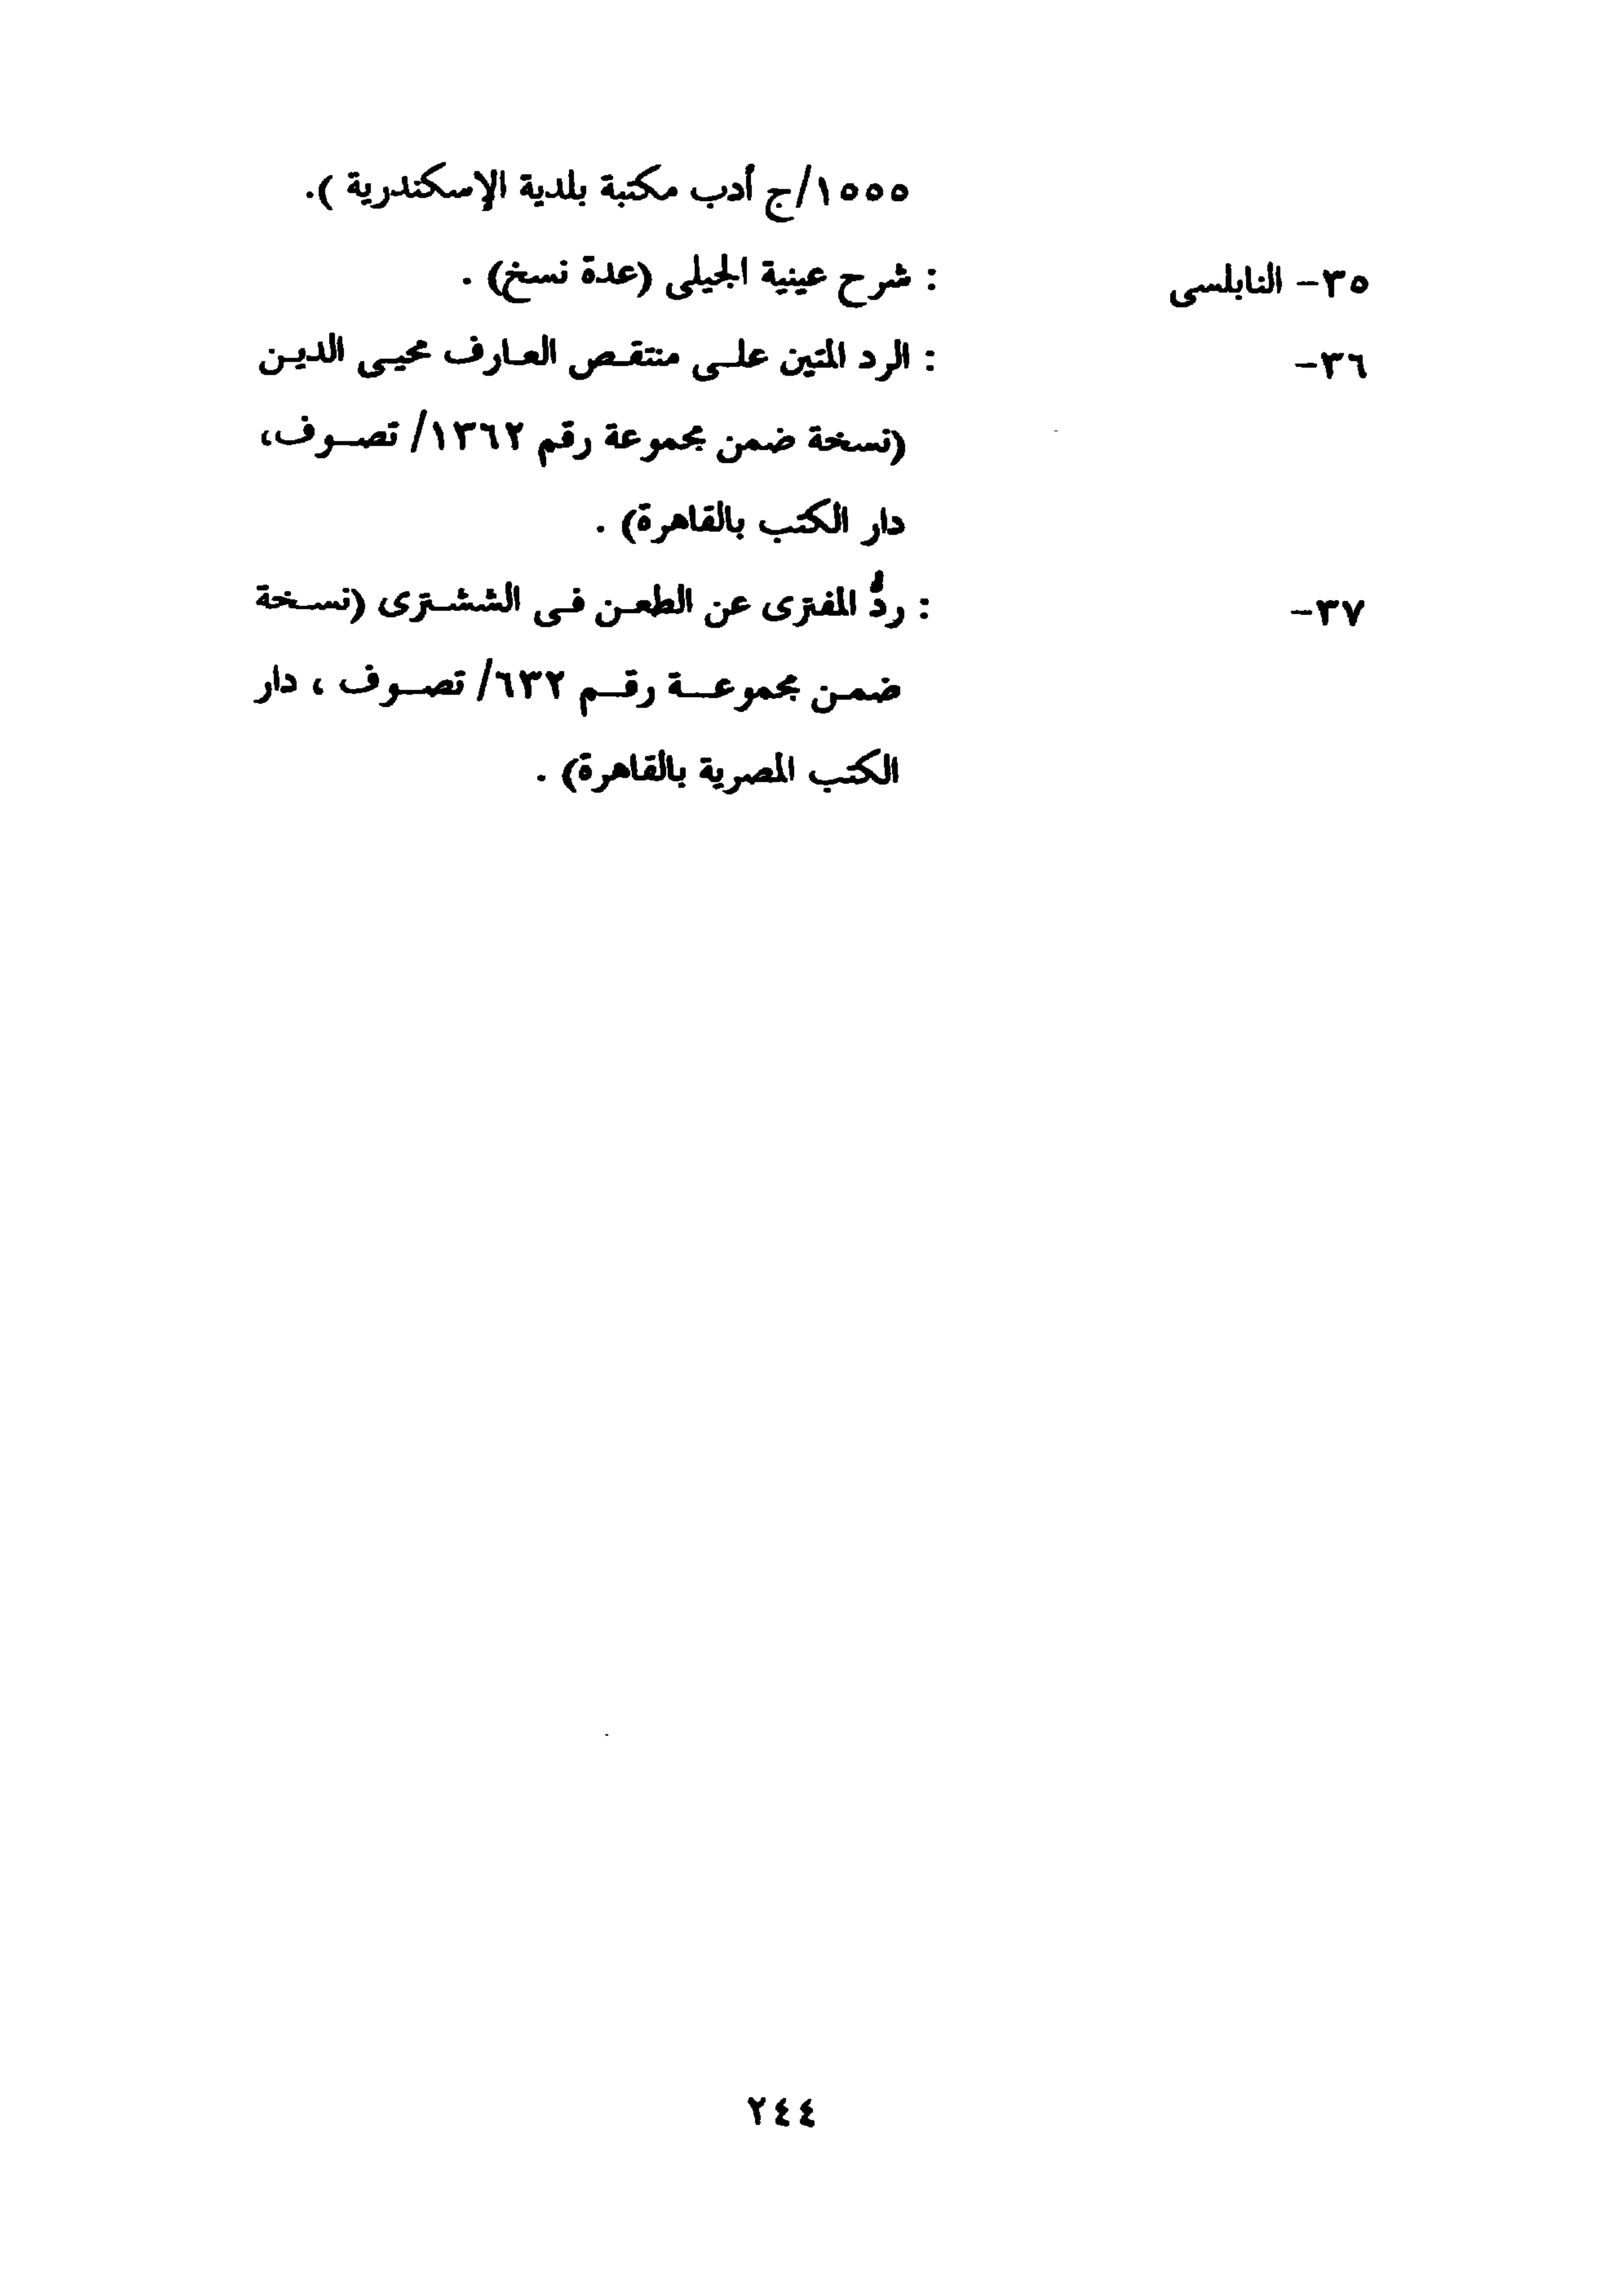 ١٥٥٥/ج أدب مكتبة بلدية الإسكندرية ).
٣٥- النابلسى : شرح عينية الجيلى (عدة نسخ) .
٣٦- : الرد المتين على منتقص العارف محيى الدين
(نسخة ضمن مجموعة رقم ١٣٦٢/ تصوف،
دار الكتب بالقاهرة) .
٣٧- : ردُّ المفترى عن الطعن فى الششترى (نسخة
ضمن مجموعة رقم ٦٣٢/ تصوف ، دار
الكتب المصرية بالقاهرة) .
٢٤٤